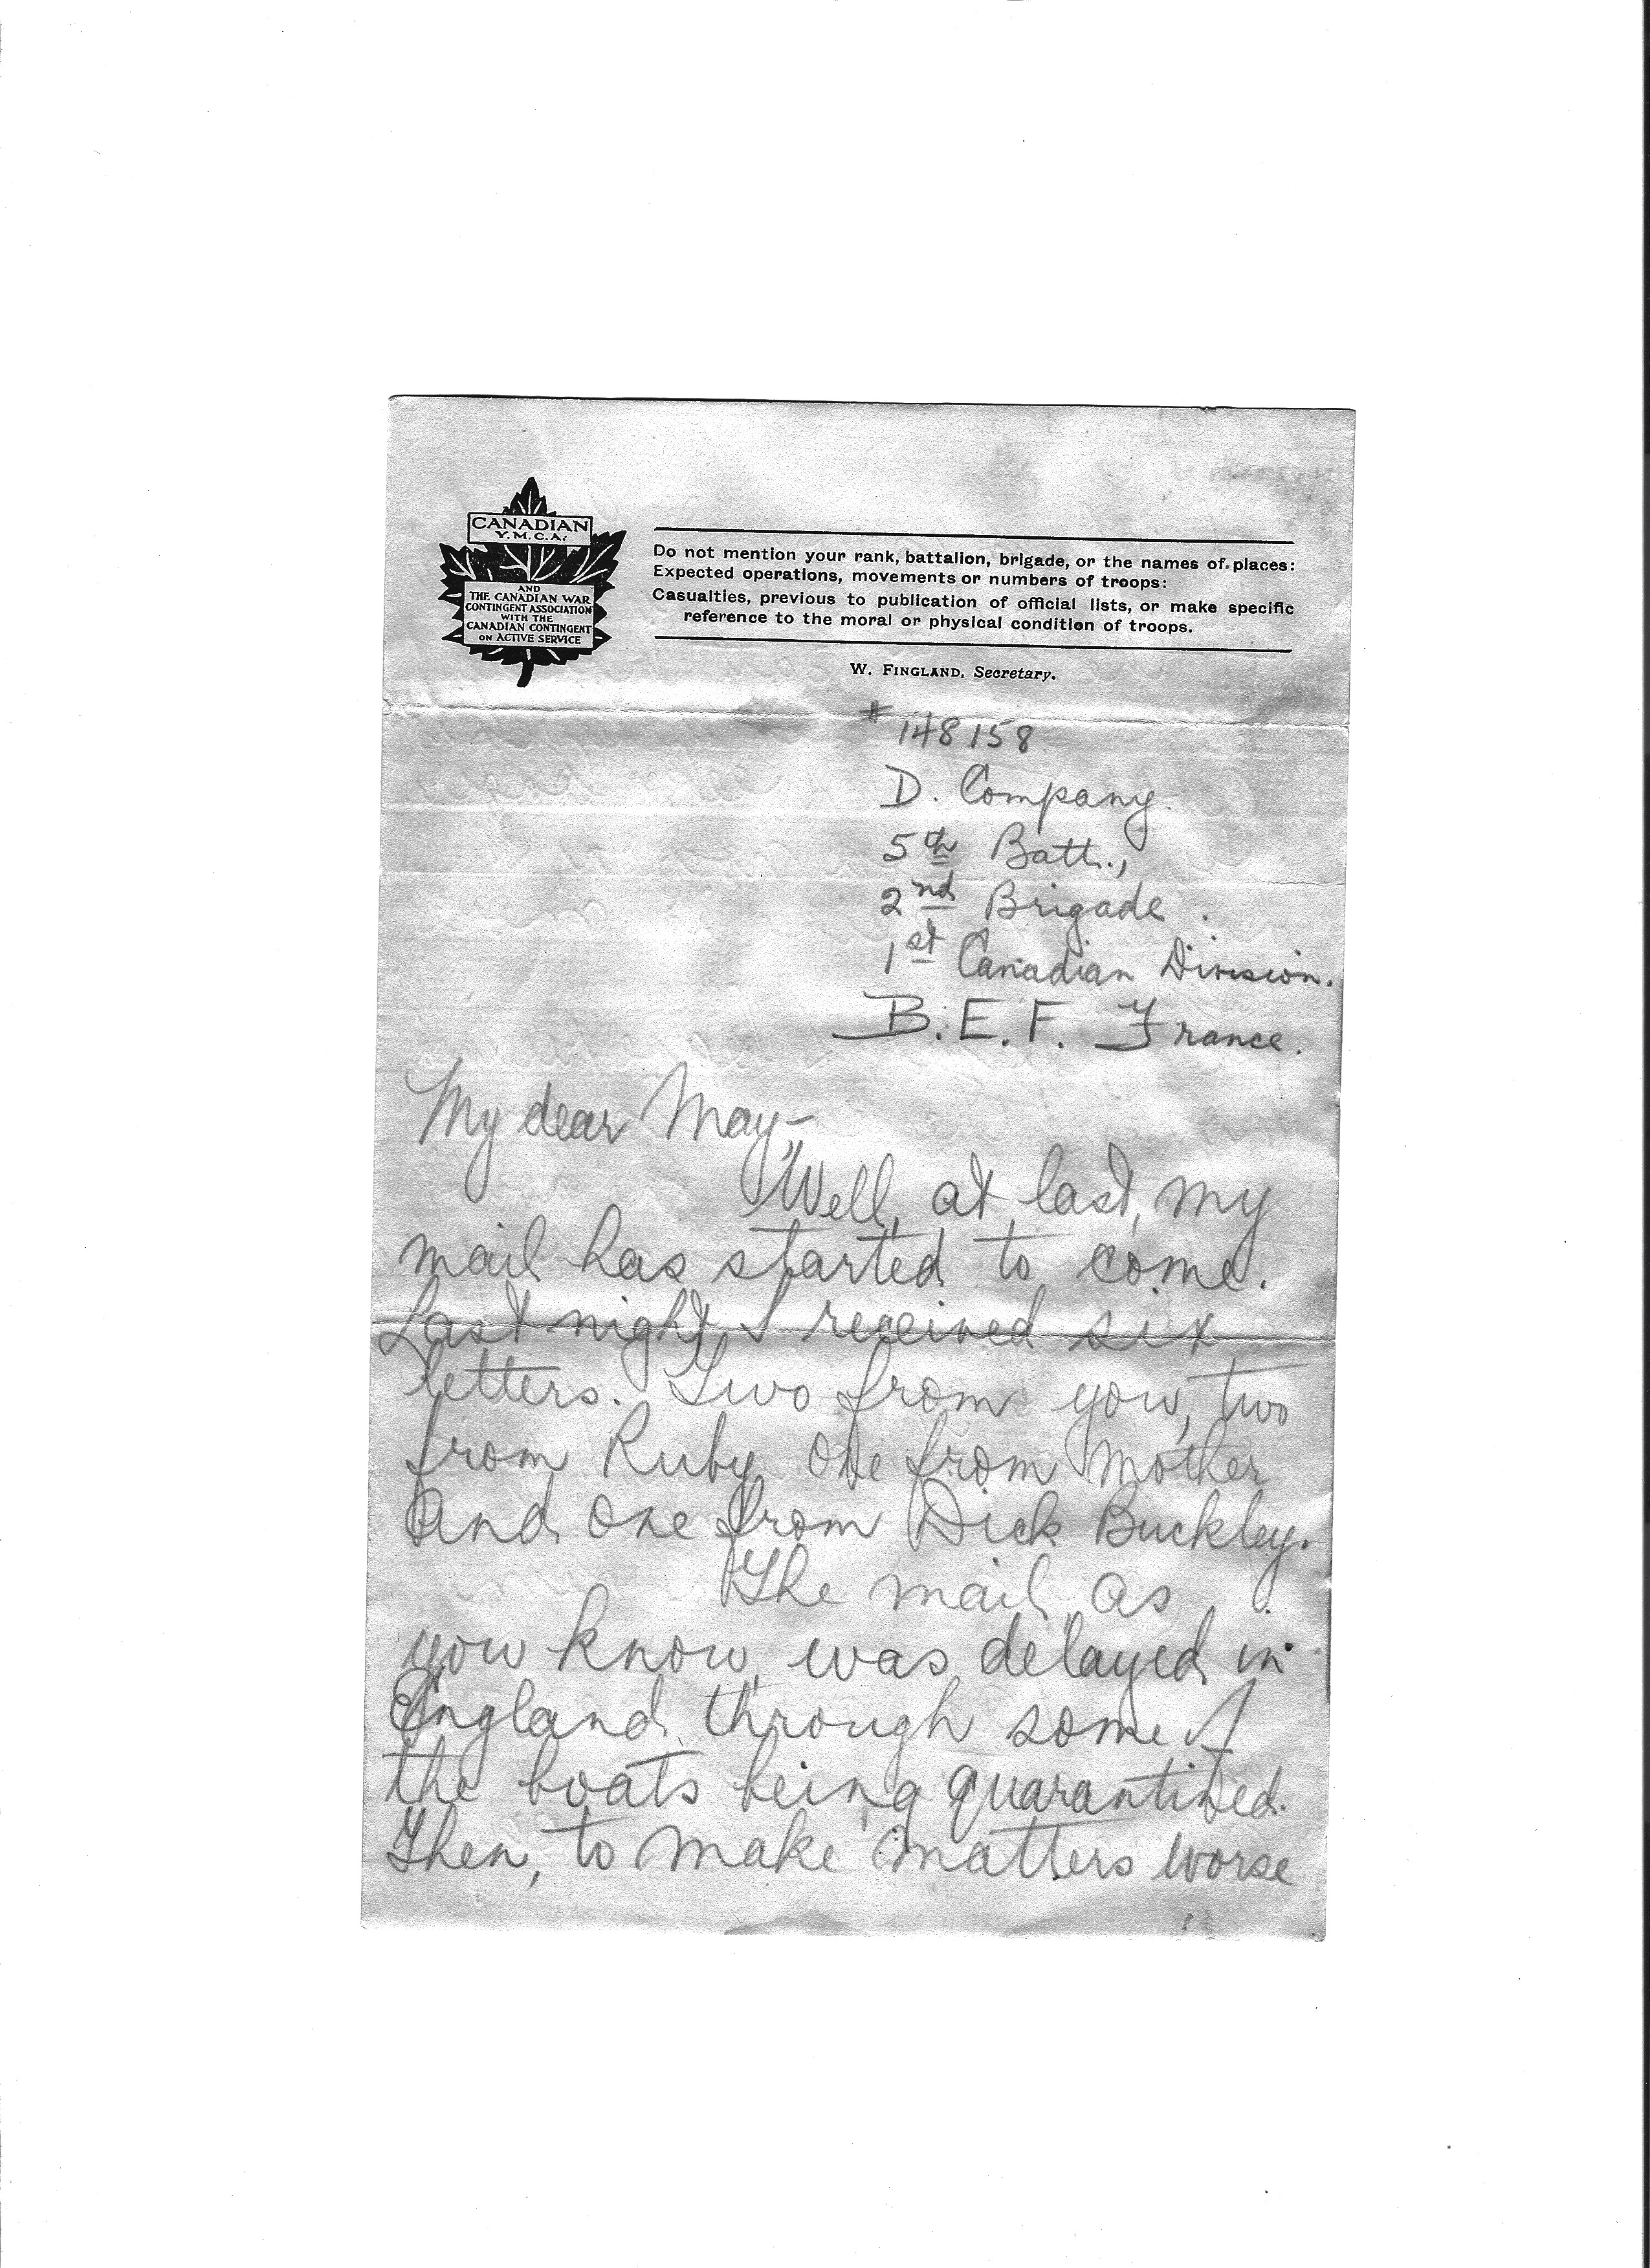 CANADIAN
Y.M.C.A.
AND
THE CANADIAN WAR
CONTINGENT ASSOCIATION
WITH THE
CANADIAN CONTINGENT
ON ACTIVE SERVICE
Do not mention your rank, battalion, brigade, or the names of places:
Expected operations, movements or numbers of troops:
Casualties, previous to publication of official lists, or make specific
reference to the moral or physical condition of troops.
W. FINGLAND, Secretary.
#148158
D. Company.
5th Batt.,
2nd Brigade.
1st Canadian Division.
B.E.F. France.
My dear May,-
Well, at last, my
mail has started to come.
Last night, I received six
letters. Two from you, two
from Ruby, one from Mother
and one from Dick Buckley.
The mail, as
you know, was delayed in
England, through some of
the boats being quarantined.
Then, to make matters worse